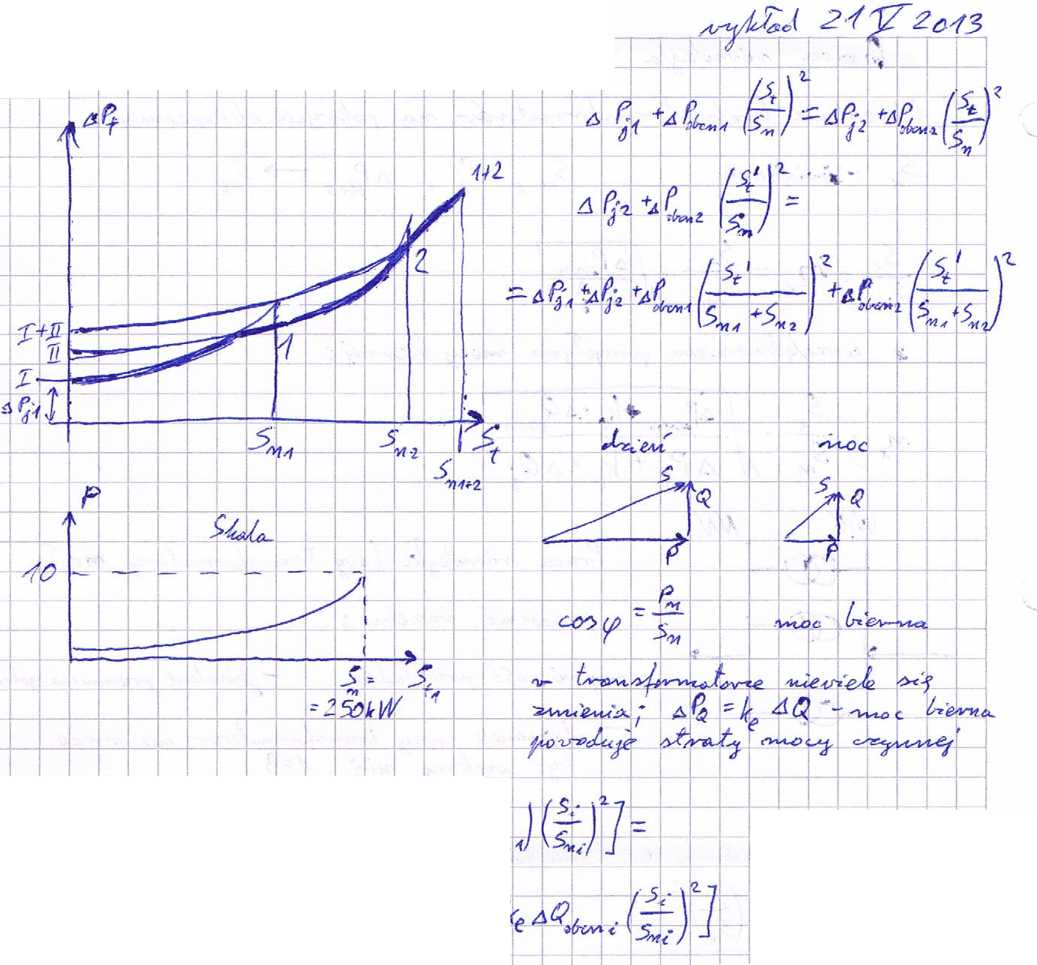 wykład 21 V 2013
ΔP_j1 + ΔP_obcn1 (S_t/S_n)² = ΔP_j2 + ΔP_obcn2 (S_t/S_n)²
ΔP_j2 + ΔP_obcn2 (S_t'/S_n)² =
= ΔP_j1 + ΔP_j2 + ΔP_obcn1 (S_t'/(S_n1 + S_n2))² + ΔP_obcn2 (S_t'/(S_n1 + S_n2))²
ΔP_t
1+2
2
1
I+II
II
I
ΔP_j1
S_n1
S_n2
S_t
S_n1+2
P
Skala
10
S_n =
= 250kW
S_t1
dzień
noc
S
Q
P
S
Q
P
cosφ = P_n/S_n
moc bierna
w transformatorze niewiele się
zmienia; ΔP_Q = k_e ΔQ - moc bierna
powoduje straty mocy czynnej
i) (S_i/S_ni)² ] =
e ΔQ_obcni (S_i/S_ni)² ]